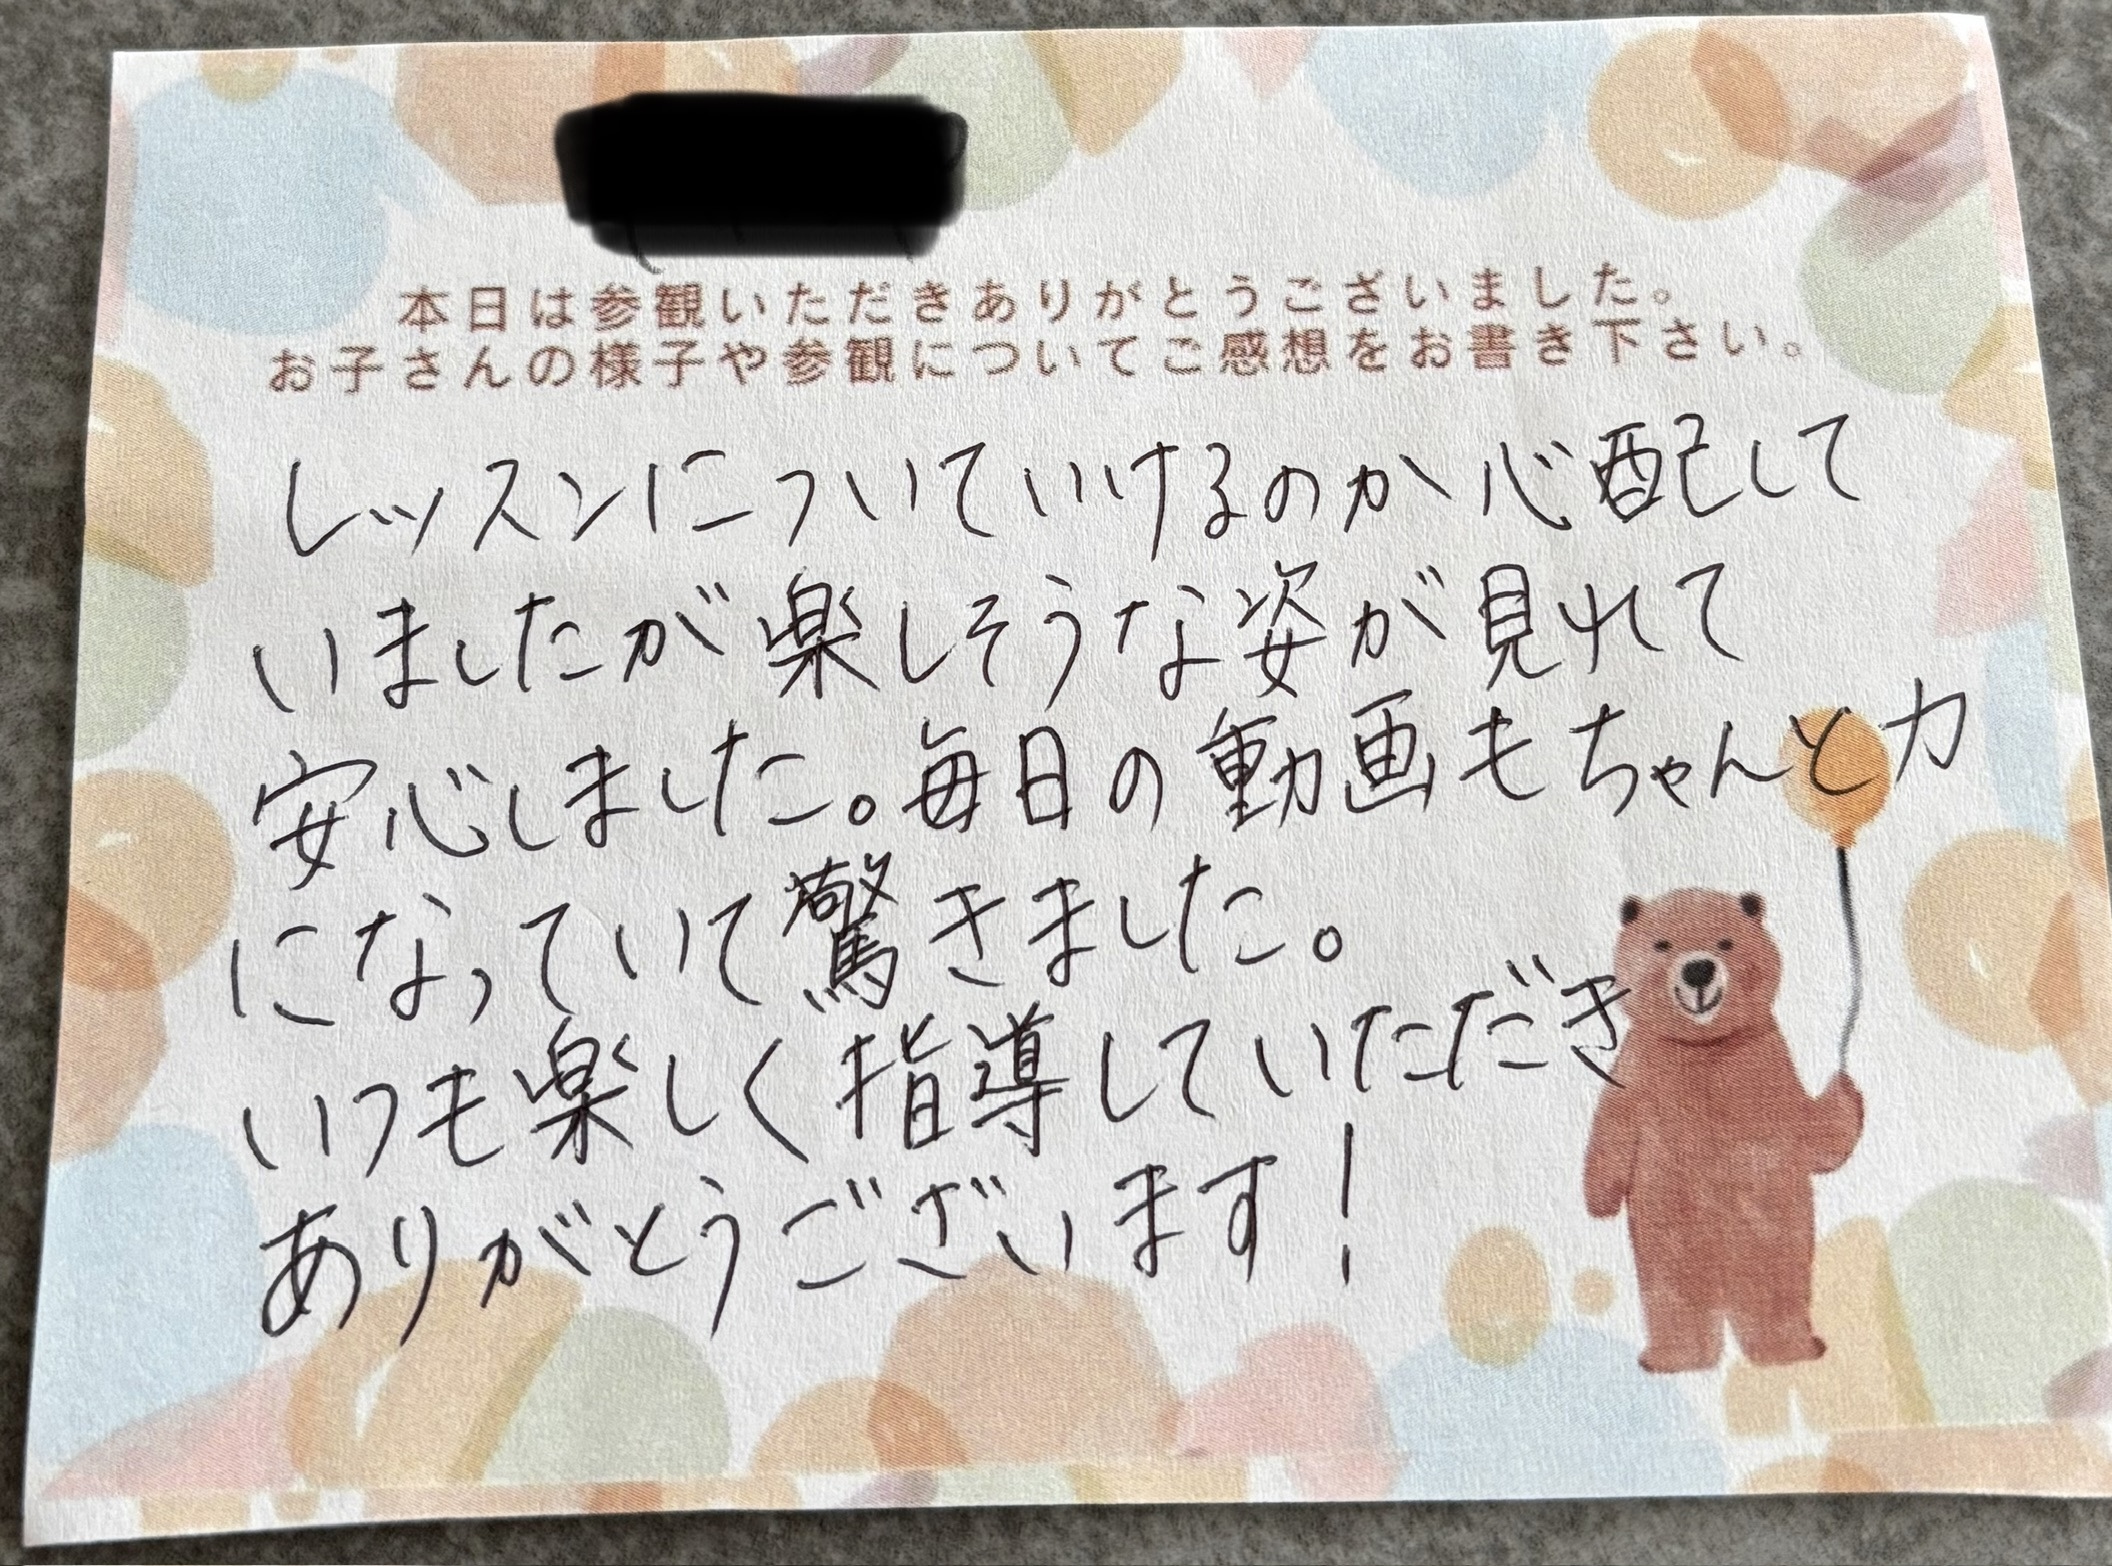 本日は参観いただきありがとうございました。
お子さんの様子や参観についてご感想をお書き下さい。
レッスンについていけるのか心配して
いましたが楽しそうな姿が見れて
安心しました。毎日の動画もちゃんと力
になっていて驚きました。
いつも楽しく指導していただき
ありがとうございます!